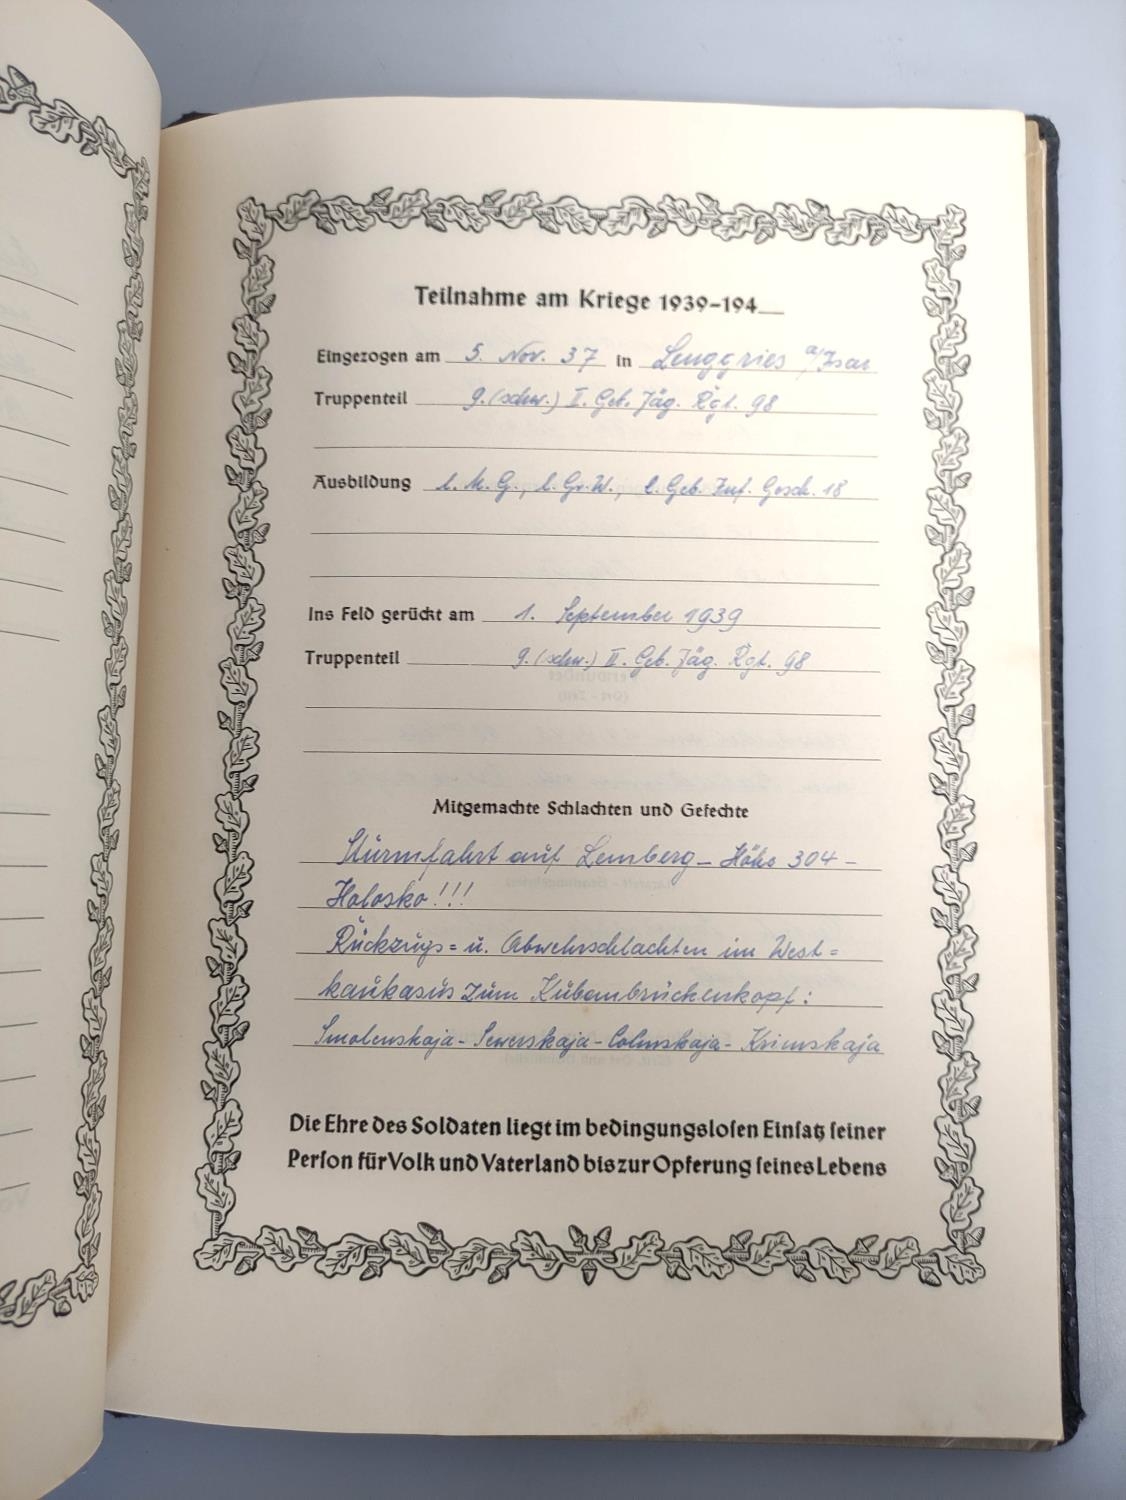 Teilnahme am Kriege 1939-194__
Eingezogen am 5. Nov. 37 in Lenggries a/Isar
Truppenteil 9. (schw.) II. Geb. Jäg. Rgt. 98
Ausbildung l. M. G., l. Gr. W., l. Geb. Inf. Gesch. 18
Ins Feld gerückt am 1. September 1939
Truppenteil 9. (schw.) II. Geb. Jäg. Rgt. 98
Mitgemachte Schlachten und Gefechte
Sturmfahrt auf Lemberg - Höhe 304 -
Holosko!!!
Rückzugs= u. Abwehrschlachten im West=
kaukasus zum Kubanbrückenkopf:
Smolenskaja - Sewerskaja - Colmskaja - Krimskaja
Die Ehre des Soldaten liegt im bedingungslosen Einsatz seiner
Person für Volk und Vaterland bis zur Opferung seines Lebens